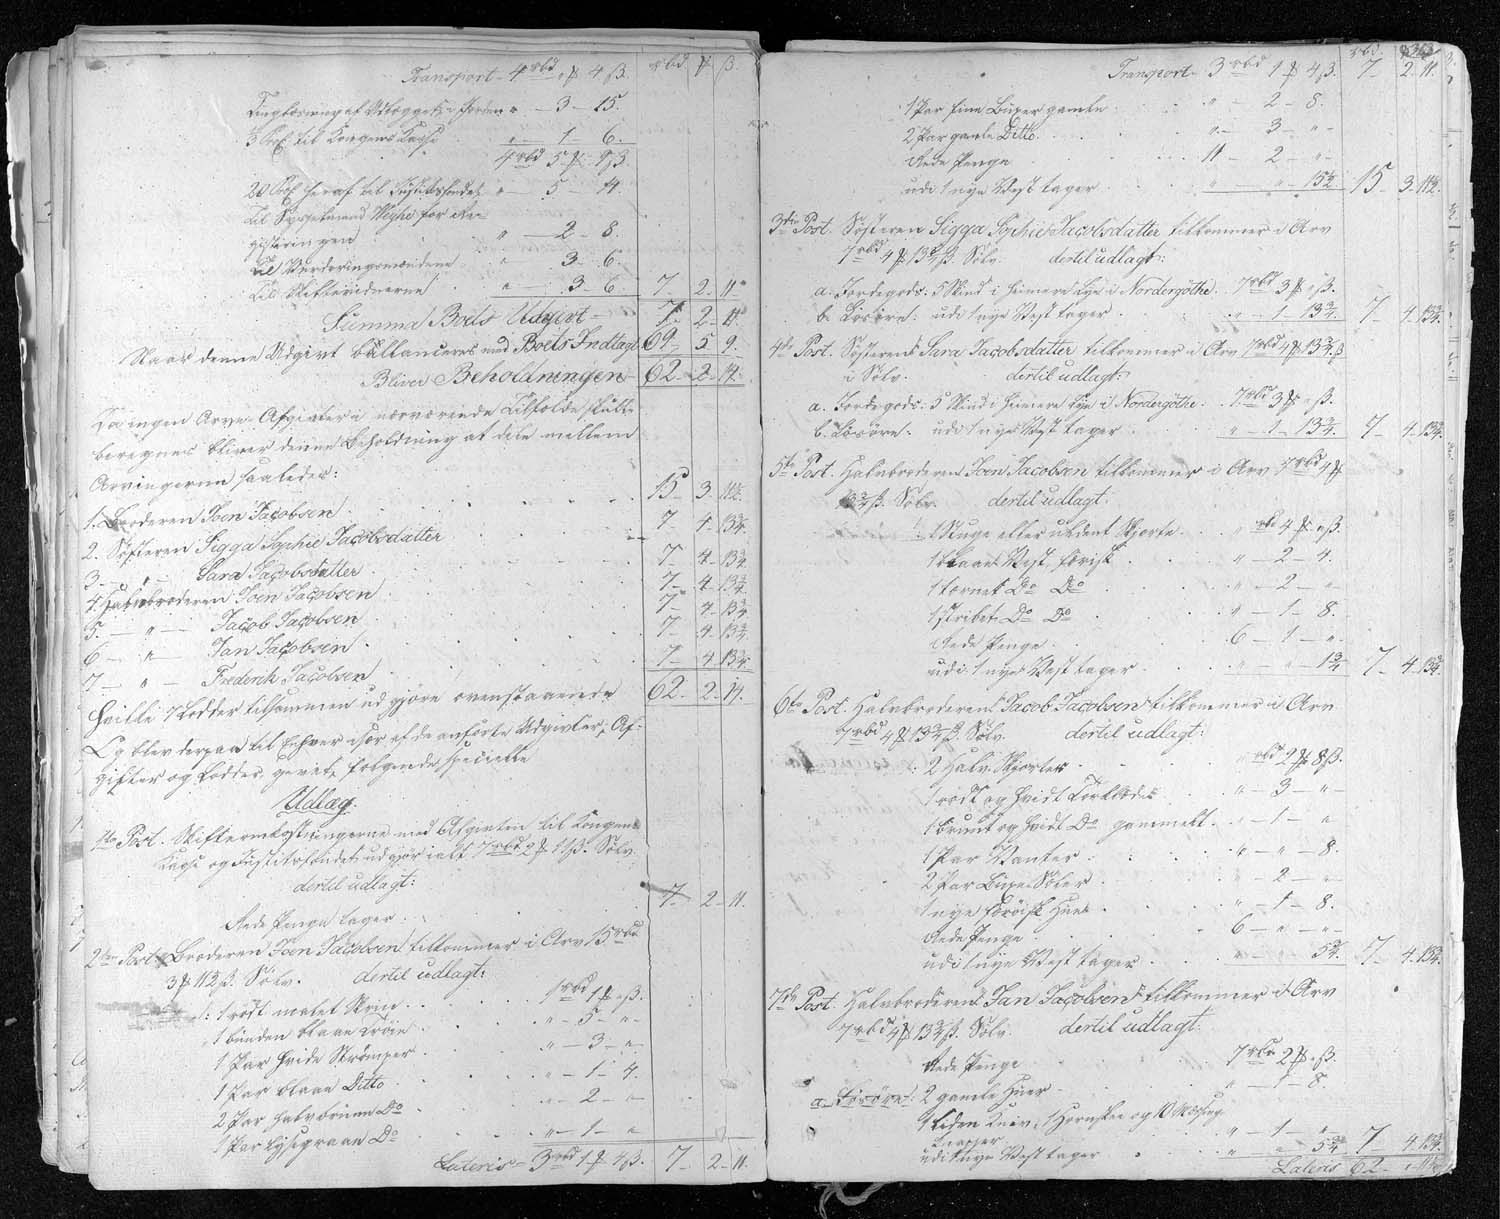 Transport 4 rbd " ₰ 4 ß. rbd ₰ ß.
Tinglæsning af Udlægget " — 3 — 15.
til Kongens Kasse " — 1 — 6.
4 rbd 5 ₰ 9 ß
heraf til Justitsfondet " — 5 — 14
Til Sysselmand Weyhe for Re-
gistringen " — 2 — 8.
Til Vurderingsmændene " 3 — 6.
Til Skiftevidnerne " — 3 — 6. 7. 2. 11.
Summa Boets Udgivt — 7. 2. 11.
Naar denne Udgivt ballanceres med Boets Indtægt 69. 5. 9.
Bliver Beholdningen — 62. 2. 14.
Da ingen Arve-Afgivter i nærværende Tilfælde skulle
beregnes bliver denne Beholdning at dele mellem
Arvingerne saaledes:
1. Broderen Joen Jacobsen 15. 3. 11½.
2. Søsteren Sigga Sophie Jacobsdatter 7. 4. 13¾.
3 — " — Sara Jacobsdatter 7. 4. 13¾
4. Halvbroderen Joen Jacobsen 7. 4. 13¾
5. — " — Jacob Jacobsen 7. 4. 13¾
6 — " — Jan Jacobsen 7. 4. 13¾.
7 — " — Frederik Jacobsen 7. 4. 13¾.
Hvilke 7 Lodder tilsammen udgjøre ovenstaaende 62. 2. 14.
Og blev derpaa til Enhver især af de anførte Udgivter, Af-
gifter og Lodder, gjorte følgende specielle
Udlag.
1ste Post. Skifteomkostningerne med Afgivten til Kongens
Kasse og Justitsfondet udgjør ialt 7 rbd 2 ₰ 11 ß. Sølv
dertil udlagt:
Rede Penge tager 7 — 2 — 11.
2den Post. Broderen Joen Jacobsen tilkommer i Arv 15 rbd
3 ₰ 11½ ß. Sølv. dertil udlagt:
1 rødt malet Skrin 1 rbd 1 ₰ " ß.
1 bunden blaae Trøie " — 5 — "
1 Par hvide Strømper " — 3 — "
1 Par blaae Ditto " — 1 — 4.
2 Par halvværume Do " — 2 — "
1 Par lysegraae Do " — 1 — "
Lateris — 3 rbd 1 ₰ 4 ß. 7 — 2 — 11.
rbd. ₰
Transport 3 rbd 1 ₰ 4 ß. 7 — 2. 11.
1 Par fine Buxer gamle " — 2 — 8.
2 Par gamle Ditto " — 3 — "
Rede Penge 11 — 2 — "
udi 1 nye Vest tager " — " — 15½ 15. 3. 11½.
3die Post. Søsteren Sigga Sophie Jacobsdatter tilkommer i Arv
7 rbd 4 ₰ 13¾ ß. Sølv. dertil udlagt:
a. Jordegods: 5 Skind i Heimere lye i Nordergöthe. 7 rbd 3 ₰ " ß.
b. Løsøre: udi 1 nye Vest tager " — 1 — 13¾. 7 — 4. 13¾.
4de Post. Søsteren Sara Jacobsdatter tilkommer i Arv 7 rbd 4 ₰ 13¾ ß
i Sølv. dertil udlagt:
a. Jordegods: 5 Skind i Heimere lye i Nordergöthe. 7 rbd 3 ₰ " ß.
b. Løsøre: udi 1 nye Vest tager " — 1 — 13¾. 7 — 4. 13¾.
5te Post. Halvbroderen Joen Jacobsen tilkommer i Arv 7 rbd 4 ₰
13¾ ß. Sølv. dertil udlagt:
1 Stuge eller uldent Skjorte " rbd 4 ₰ " ß.
1 blaae Vest, færøisk " — 2 — 4.
1 tærnet Do Do " — 2 — "
1 stribet Do Do " — 1 — 8.
Rede Penge 6 — 1 — "
udi 1 nye Vest tager " — " — 1¾ 7 — 4. 13¾.
6te Post. Halvbroderen Jacob Jacobsen tilkommer i Arv
7 rbd 4 ₰ 13¾ ß. Sølv. dertil udlagt:
2 Halv Skjorter " rbd 2 ₰ 8 ß.
1 rødt og hvidt Forklæde " — 3 — "
1 bruunt og hvidt Do gammelt " — 1 — "
1 Par Vanter " — " — 8.
2 Par Buxe Seler " — 2 — "
1 nye færøisk Hue " — 1 — 8.
Rede Penge 6 — " — "
udi 1 nye Vest tager " — " — 5¾. 7 — 4. 13¾.
7de Post. Halvbroderen Jan Jacobsen tilkommer i Arv
7 rbd 4 ₰ 13¾ ß. Sølv. dertil udlagt:
Rede Penge 7 rbd 2 ₰ " ß.
a. Løsøre: 2 gamle Huer " — 1 — 8.
1 liden Kniv, 1 Hornskee og 10 Messing
Knapper " — 1 — "
udi 1 nye Vest tager " — " — 5¾ 7 4. 13¾.
Lateris 62 — 1 — 11½